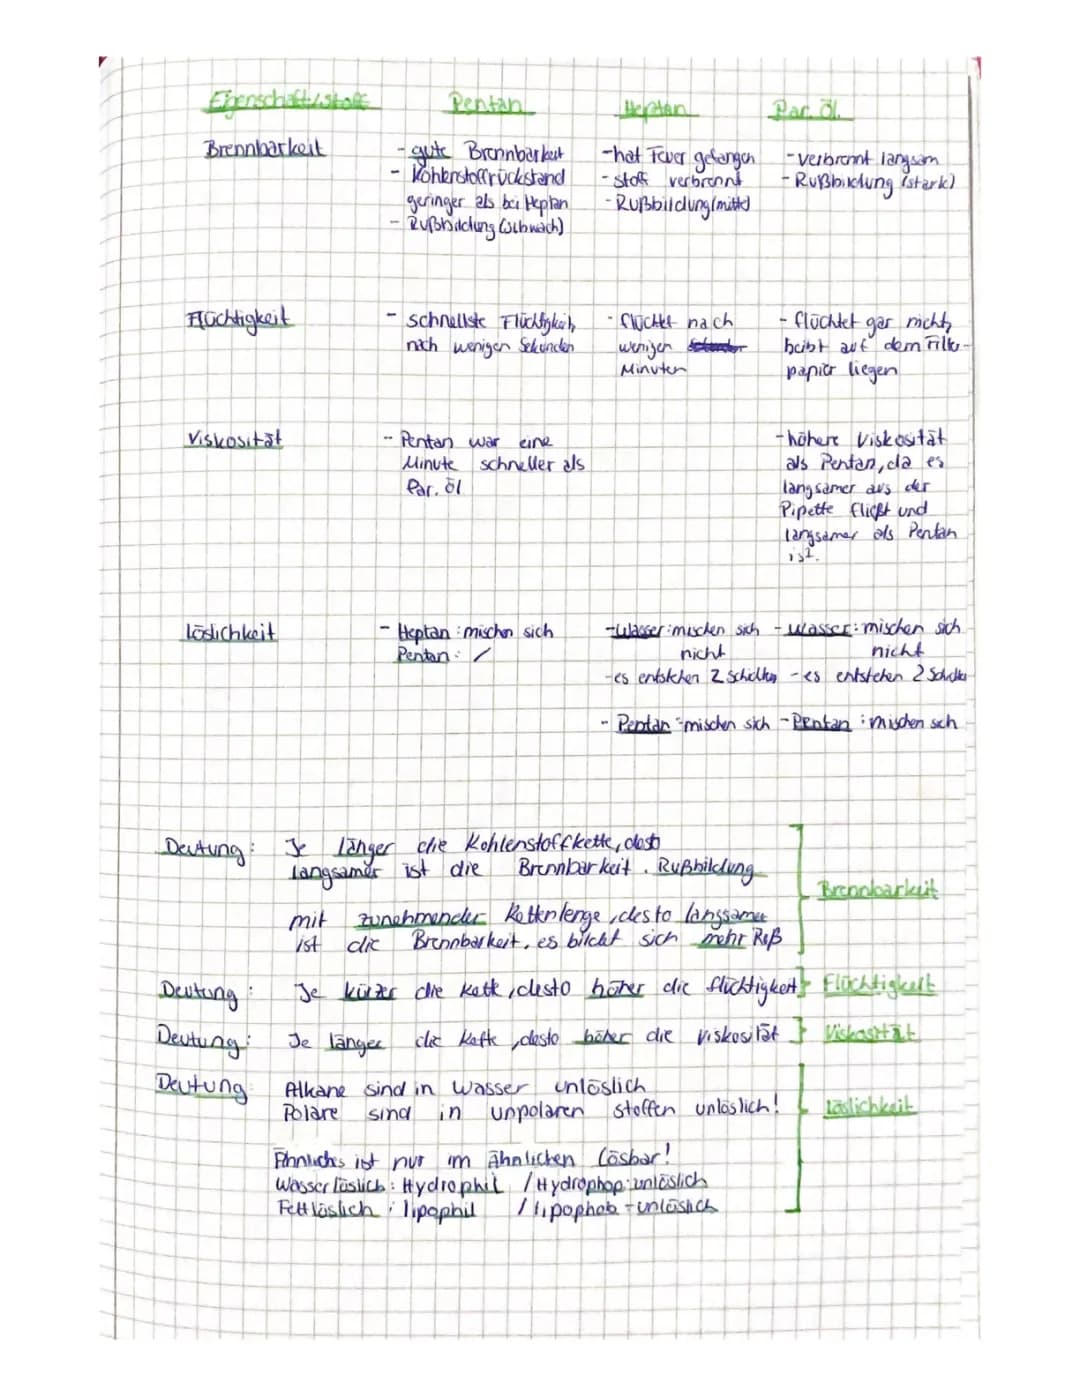 Eigenschaft/Stoff Pentan Heptan Par. Öl
Brennbarkeit
- gute Brennbarkeit
- Kohlenstoffrückstand
geringer als bei Heptan
- Rußbildung (schwach)
- hat Feuer gefangen
- Stoff verbrennt
- Rußbildung (mittel)
- verbrennt langsam
- Rußbildung (stark)
Flüchtigkeit
- schnellste Flüchtigkeit,
nach wenigen Sekunden
- flüchtet nach
wenigen
Minuten
- flüchtet gar nicht,
beibt auf dem Filter-
papier liegen
Viskosität
- Pentan war eine
Minute schneller als
Par. Öl
- höhere Viskosität
als Pentan, da es
langsamer aus der
Pipette fließt und
langsamer als Pentan
ist.
Löslichkeit
- Heptan: mischen sich
Pentan: /
- Wasser: mischen sich
nicht
- es entstehen 2 Schichten
- Pentan - mischen sich
- Wasser: mischen sich
nicht
- es entstehen 2 Schichten
- Pentan: mischen sich
Deutung: Je länger die Kohlenstoffkette, desto
langsamer ist die Brennbarkeit. Rußbildung
mit zunehmender Kettenlenge, desto langsamer
ist die Brennbarkeit, es bildet sich mehr Ruß
Brennbarkeit
Deutung: Je kürzer die Kette, desto höher die flüchtigkeit} Flüchtigkeit
Deutung: Je länger die Kette, desto höher die Viskosität } Viskosität
Deutung: Alkane sind in Wasser unlöslich
Polare sind in unpolaren stoffen unlöslich!
Löslichkeit
Ähnliches ist nur im ähnlichen lösbar!
Wasserlöslich: Hydrophil / Hydrophop: unlöslich
Fettlöslich: lipophil / lipophob - unlöslich